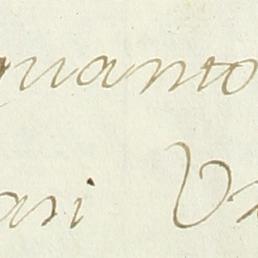 quanto
ari V